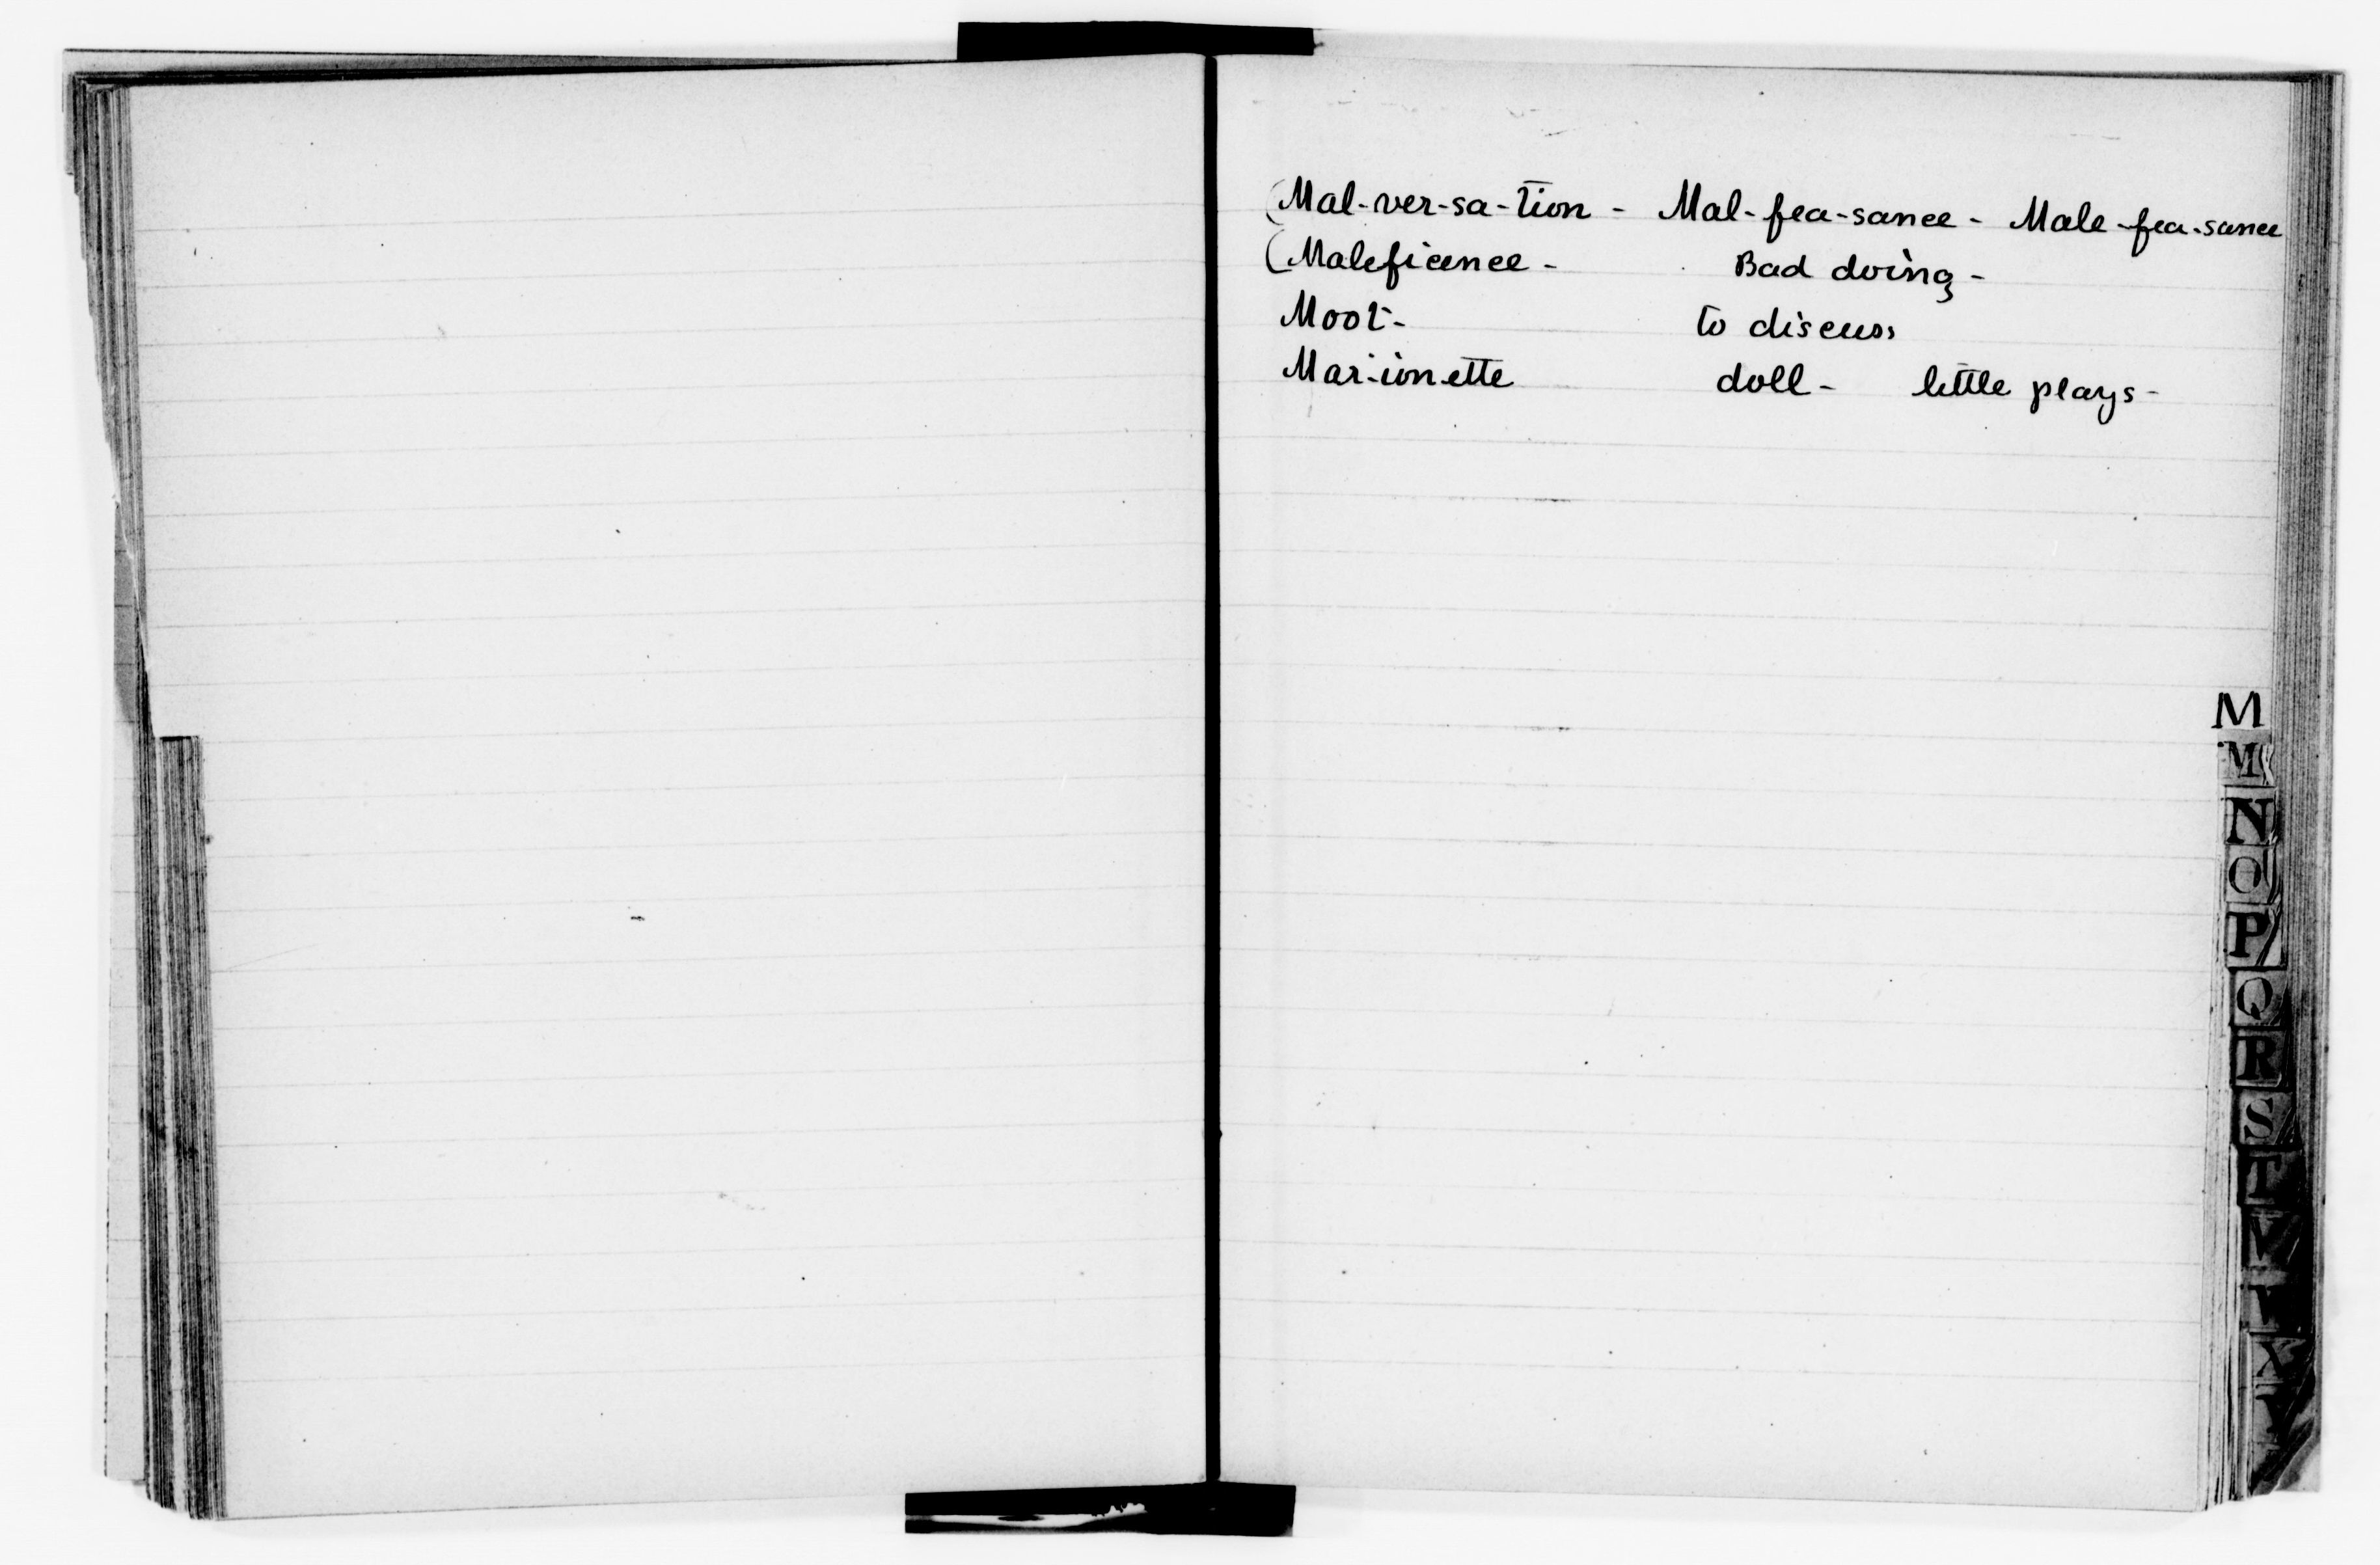 (Mal-ver-sa-tion - Mal-fea-sance - Male-fea-sance
(Maleficence - Bad doing -
Moot - to discuss
Mar-ion-ette doll - little plays -
M
M
N
O
P
Q
R
S
T
V
X